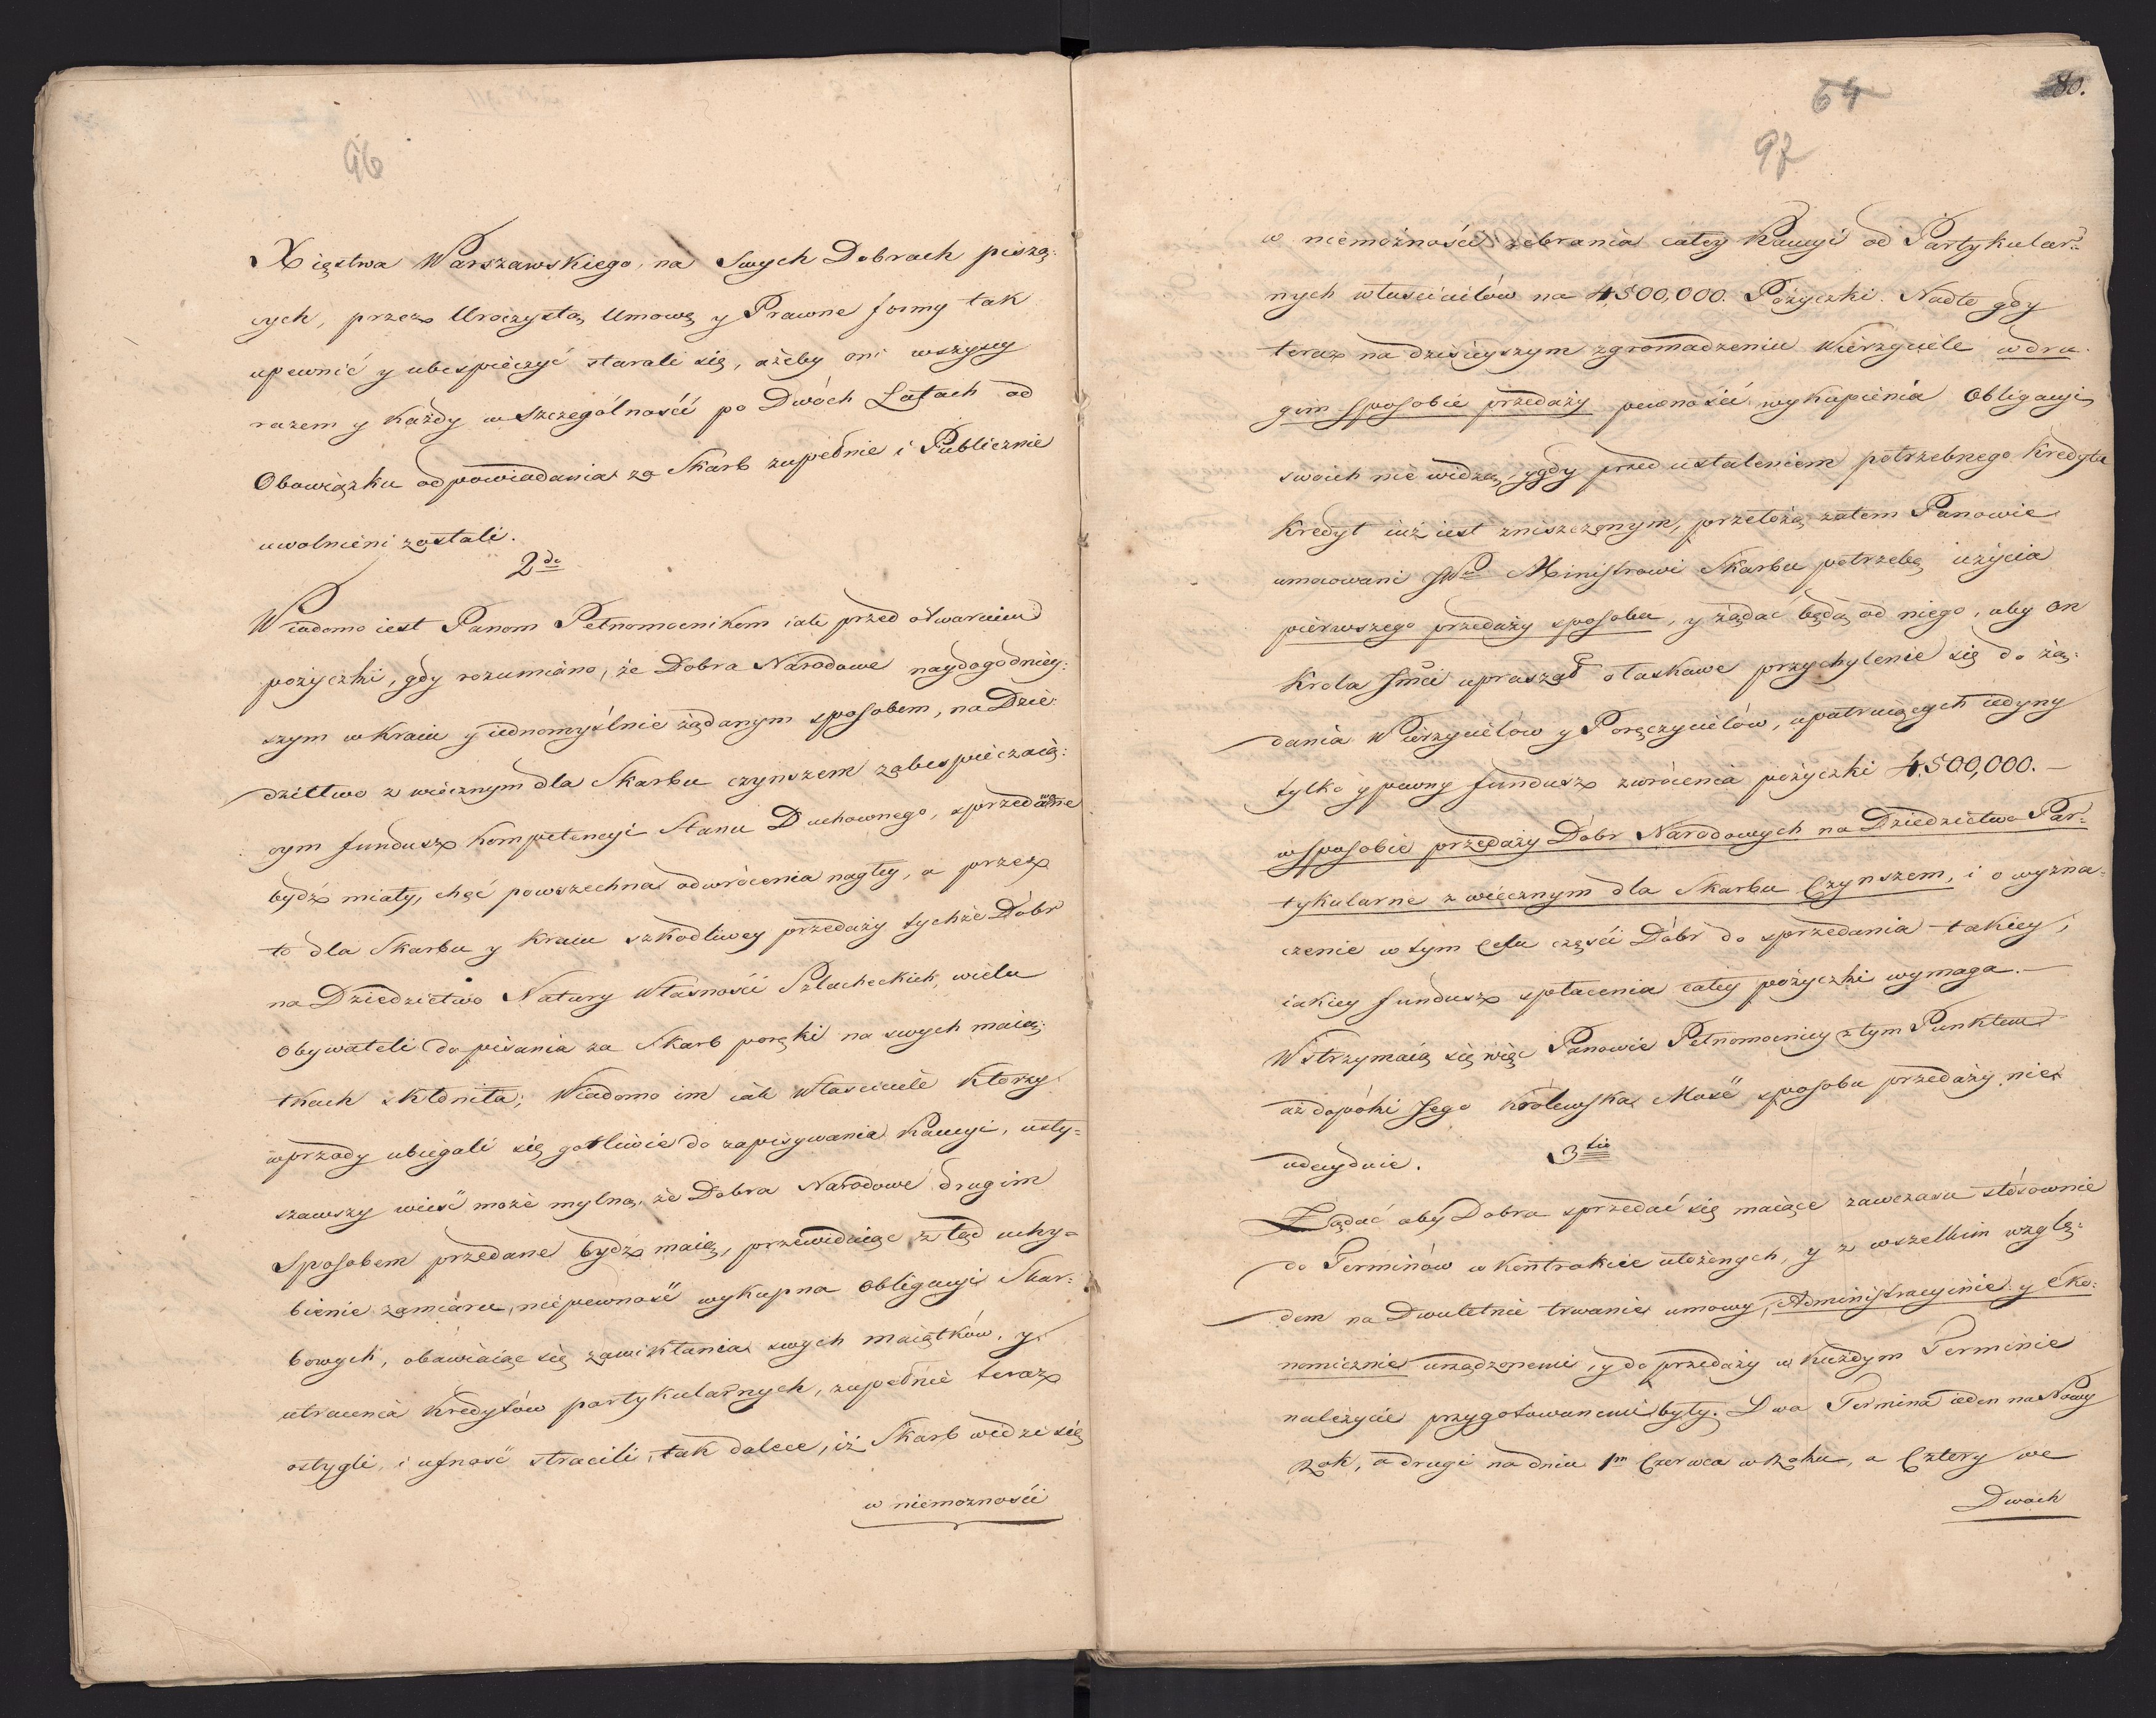 96
Xięstwa Warszawskiego, na Swych Dobrach piszą:
cych, przez Uroczystą Umowę y Prawne formy tak
upewnić y ubespieczyć starali się, ażeby oni wszyscy
razem y Każdy w szczególności po Dwóch Latach od
Obowiązku odpowiadania za Skarb zupełnie i Publicznie
uwolnieni zostali.
2do
Wiadomo iest Panom Pełnomocnikom iak przed otwarciem
pożyczki, gdy rozumiano, że Dobra Narodowe naydogodniey:
szym w Kraiu y iednomyślnie żądanym sposobem, na Dzie:
dzictwo z wiecznym dla Skarbu czynszem zabespieczaią:
cym fundusz Kompetencyi Stanu Duchownego, sprzedane
bydź miały, chęć powszechna odwrócenia nagłey, a przez
to dla Skarbu y Kraiu szkodliwey przedaży tychże Dóbr
na Dziedzictwo Natury Własności Szlacheckich, wielu
Obywateli do pisania za Skarb poręki na swych maią:
tkach skłoniła; Wiadomo im iak Właściciele Którzy
wprzody ubiegali się gorliwie do zapisywania Kaucyi, usły=
szawszy wieść może mylną, że Dobra Narodowe drugim
Sposobem przedane bydź maią, przewiduiąc ztąd uchy=
bienie zamiaru, niepewność wykupna Obligacyi Skar:
bowych, obawiaiąc się zawikłania swych maiątków, y
utracenia Kredytów partykularnych, zupełnie teraz
ostygli, i ufność stracili, tak dalece, iż Skarb widzi się
w niemożności
64
80.
97
w niemożności zebrania całey Kaucyi od Partykular:
nych właścicielów na 4,500,000. Pożyczki. Nadto gdy
teraz na dzisieyszym zgromadzeniu Wierzyciele w dru:
gim sposobie przedaży pewności wykupienia Obligacyi
swoich nie widzą, y gdy przed ustaleniem potrzebnego Kredytu
Kredyt iuż iest zniszczonym, przełożą zatem Panowie
umocowani JWu Ministrowi Skarbu potrzebę użycia
pierwszego przedaży sposobu, y żądać będą od niego, aby on
Krola Jmci upraszał o łaskawe przychylenie się do żą:
dania Wierzycielów y Poręczycielów, upatruiących iedyny
tylko y pewny fundusz zwrócenia pożyczki 4,500,000.—
w sposobie przedaży Dóbr Narodowych na Dziedzictwo Par:
tykularne z wiecznym dla Skarbu Czynszem, i o wyzna=
czenie w tym Celu części Dóbr do sprzedania takiey,
iakiey fundusz spłacenia całey pożyczki wymaga.—
Wstrzymaią się więc Panowie Pełnomocnicy z tym Punktem
aż dopóki Jego Królewska Mość sposobu przedaży nie
udecyduie.
3tio
Żądać aby Dobra sprzedać się maiące zawczasu stósownie
do Terminów w Kontrakcie ułożonych, y z wszelkim wzglę:
dem na Dwuletnie trwanie umowy, Administracyinie y Eko:
nomicznie urządzonemi, y do przedaży w Każdym Terminie
należycie przygotowanemi były. Dwa Termina ieden na Nowy
Rok, a drugi na dniu 1m Czerwca w Roku, a Cztery we
Dwóch